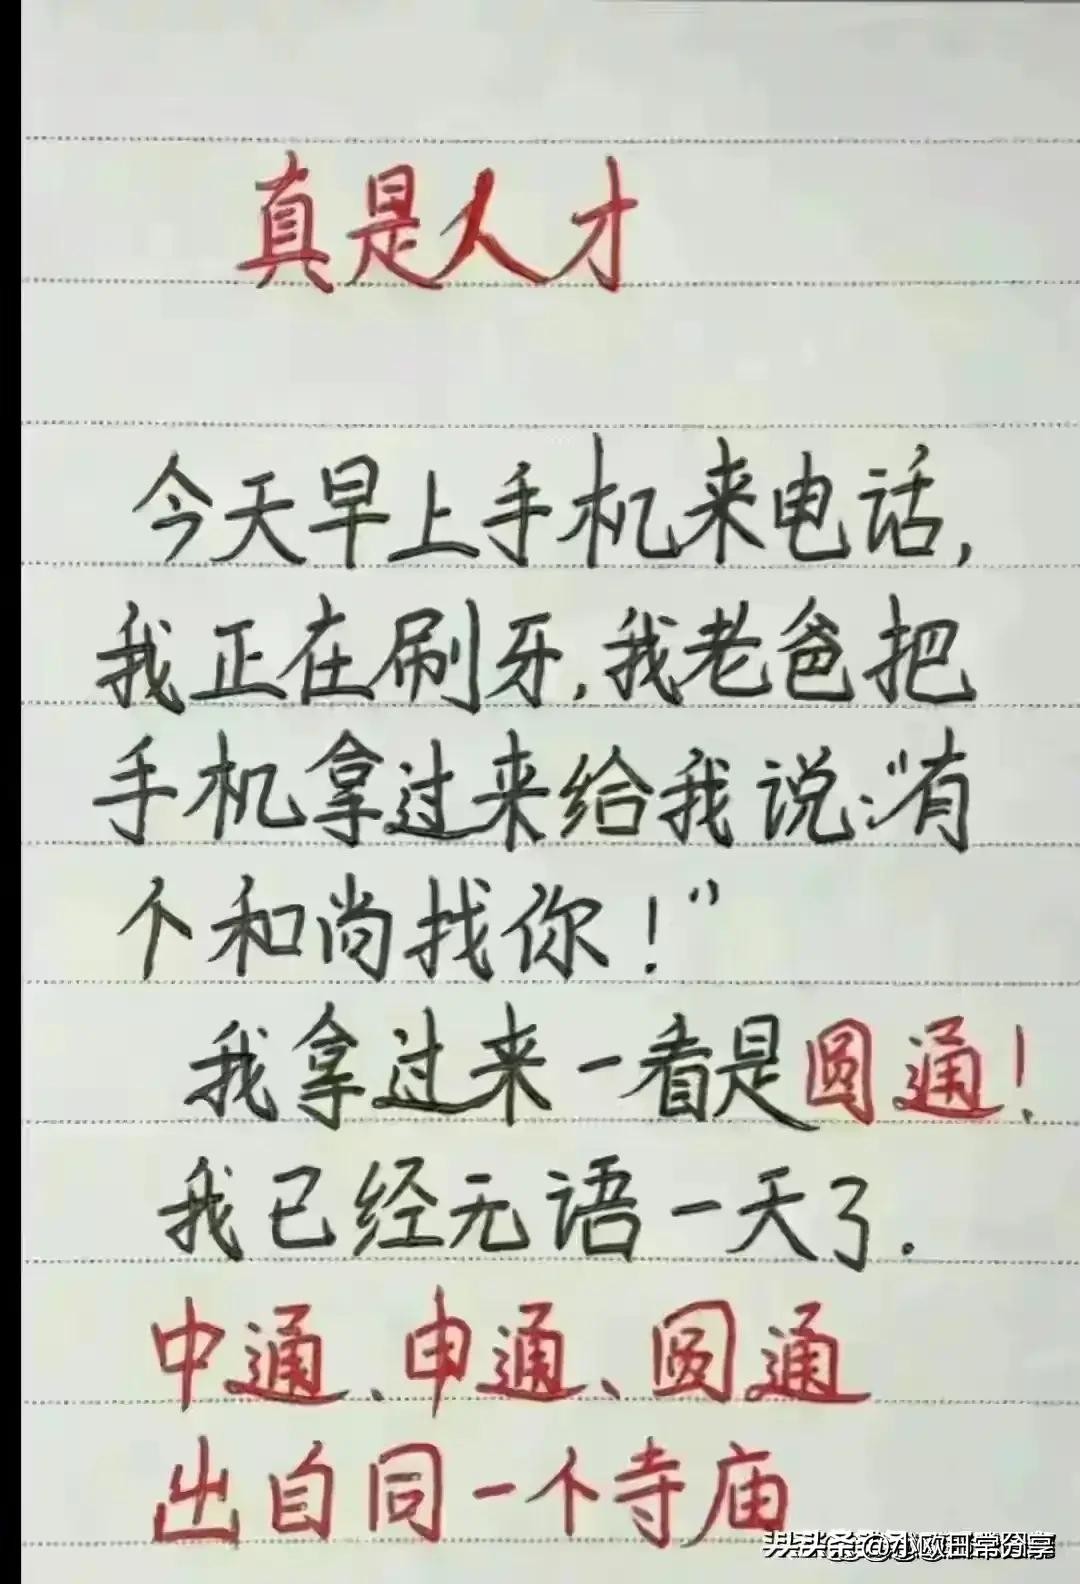 真是人才
今天早上手机来电话,
我正在刷牙.我老爸把
手机拿过来给我说:“有
个和尚找你!”
我拿过来一看是圆通!
我已经无语一天了.
中通、申通、圆通
出自同一个寺庙
头条@小欧日常分享